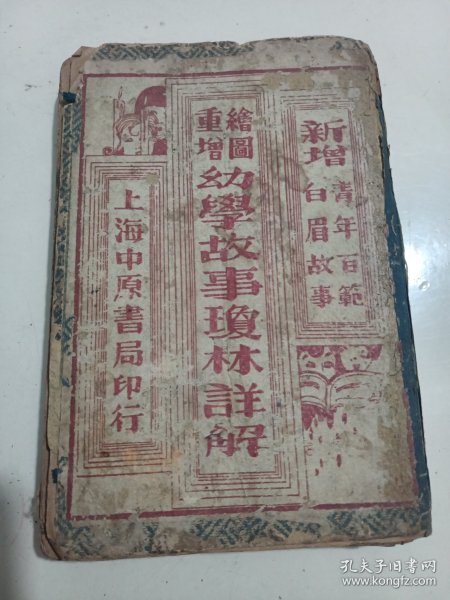 新增
青年百範
白眉故事
繪圖
重增
幼學故事瓊林詳解
上海中原書局印行
孔夫子旧书网
www.kongfz.com